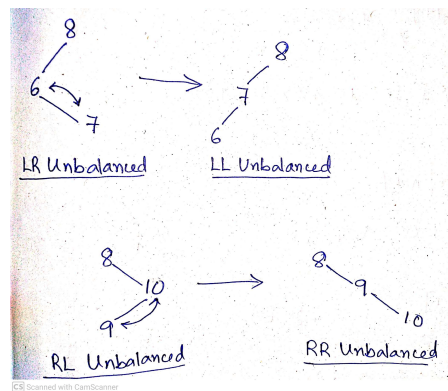 8
6
7
LR Unbalanced
8
7
6
LL Unbalanced
8
10
9
RL Unbalanced
8
9
10
RR Unbalanced
CS Scanned with CamScanner